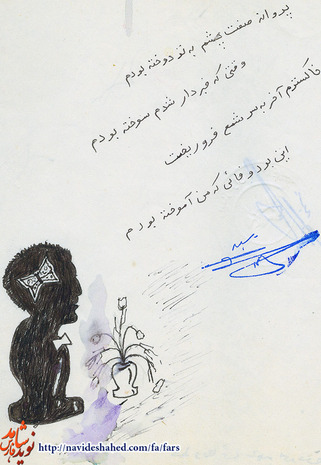 پروانه صفت چشم به تو دوخته بودم
وقتی که خبردار شدم سوخته بودم
خاکسترم آخر به سر شمع فرو ریخت
این بود وفائی که من آموخته بودم
نوید شاهد
فارس
http://navideshahed.com/fa/fars